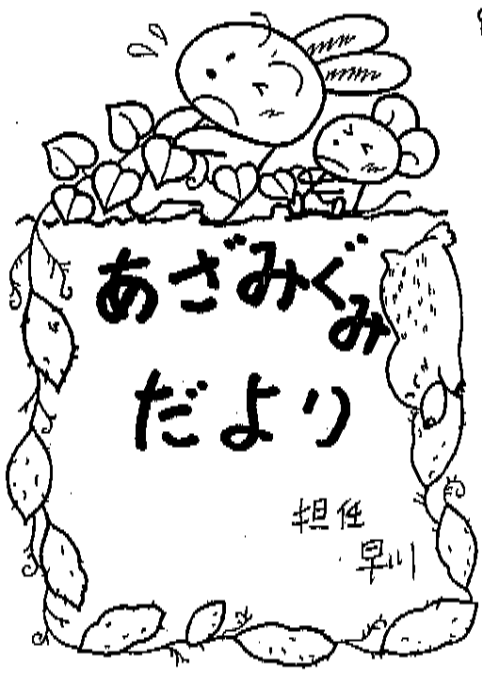 あざみぐみ
だより
担任
早川